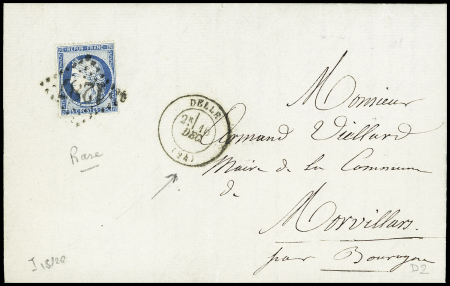 REPUB. FRANC.
DELLE
2E / 16
DEC.
(94)
Monsieur
Armand Viellard
Maire de la Commune
de
Morvillars
par Bourogne
Rare
I 18/20
D2